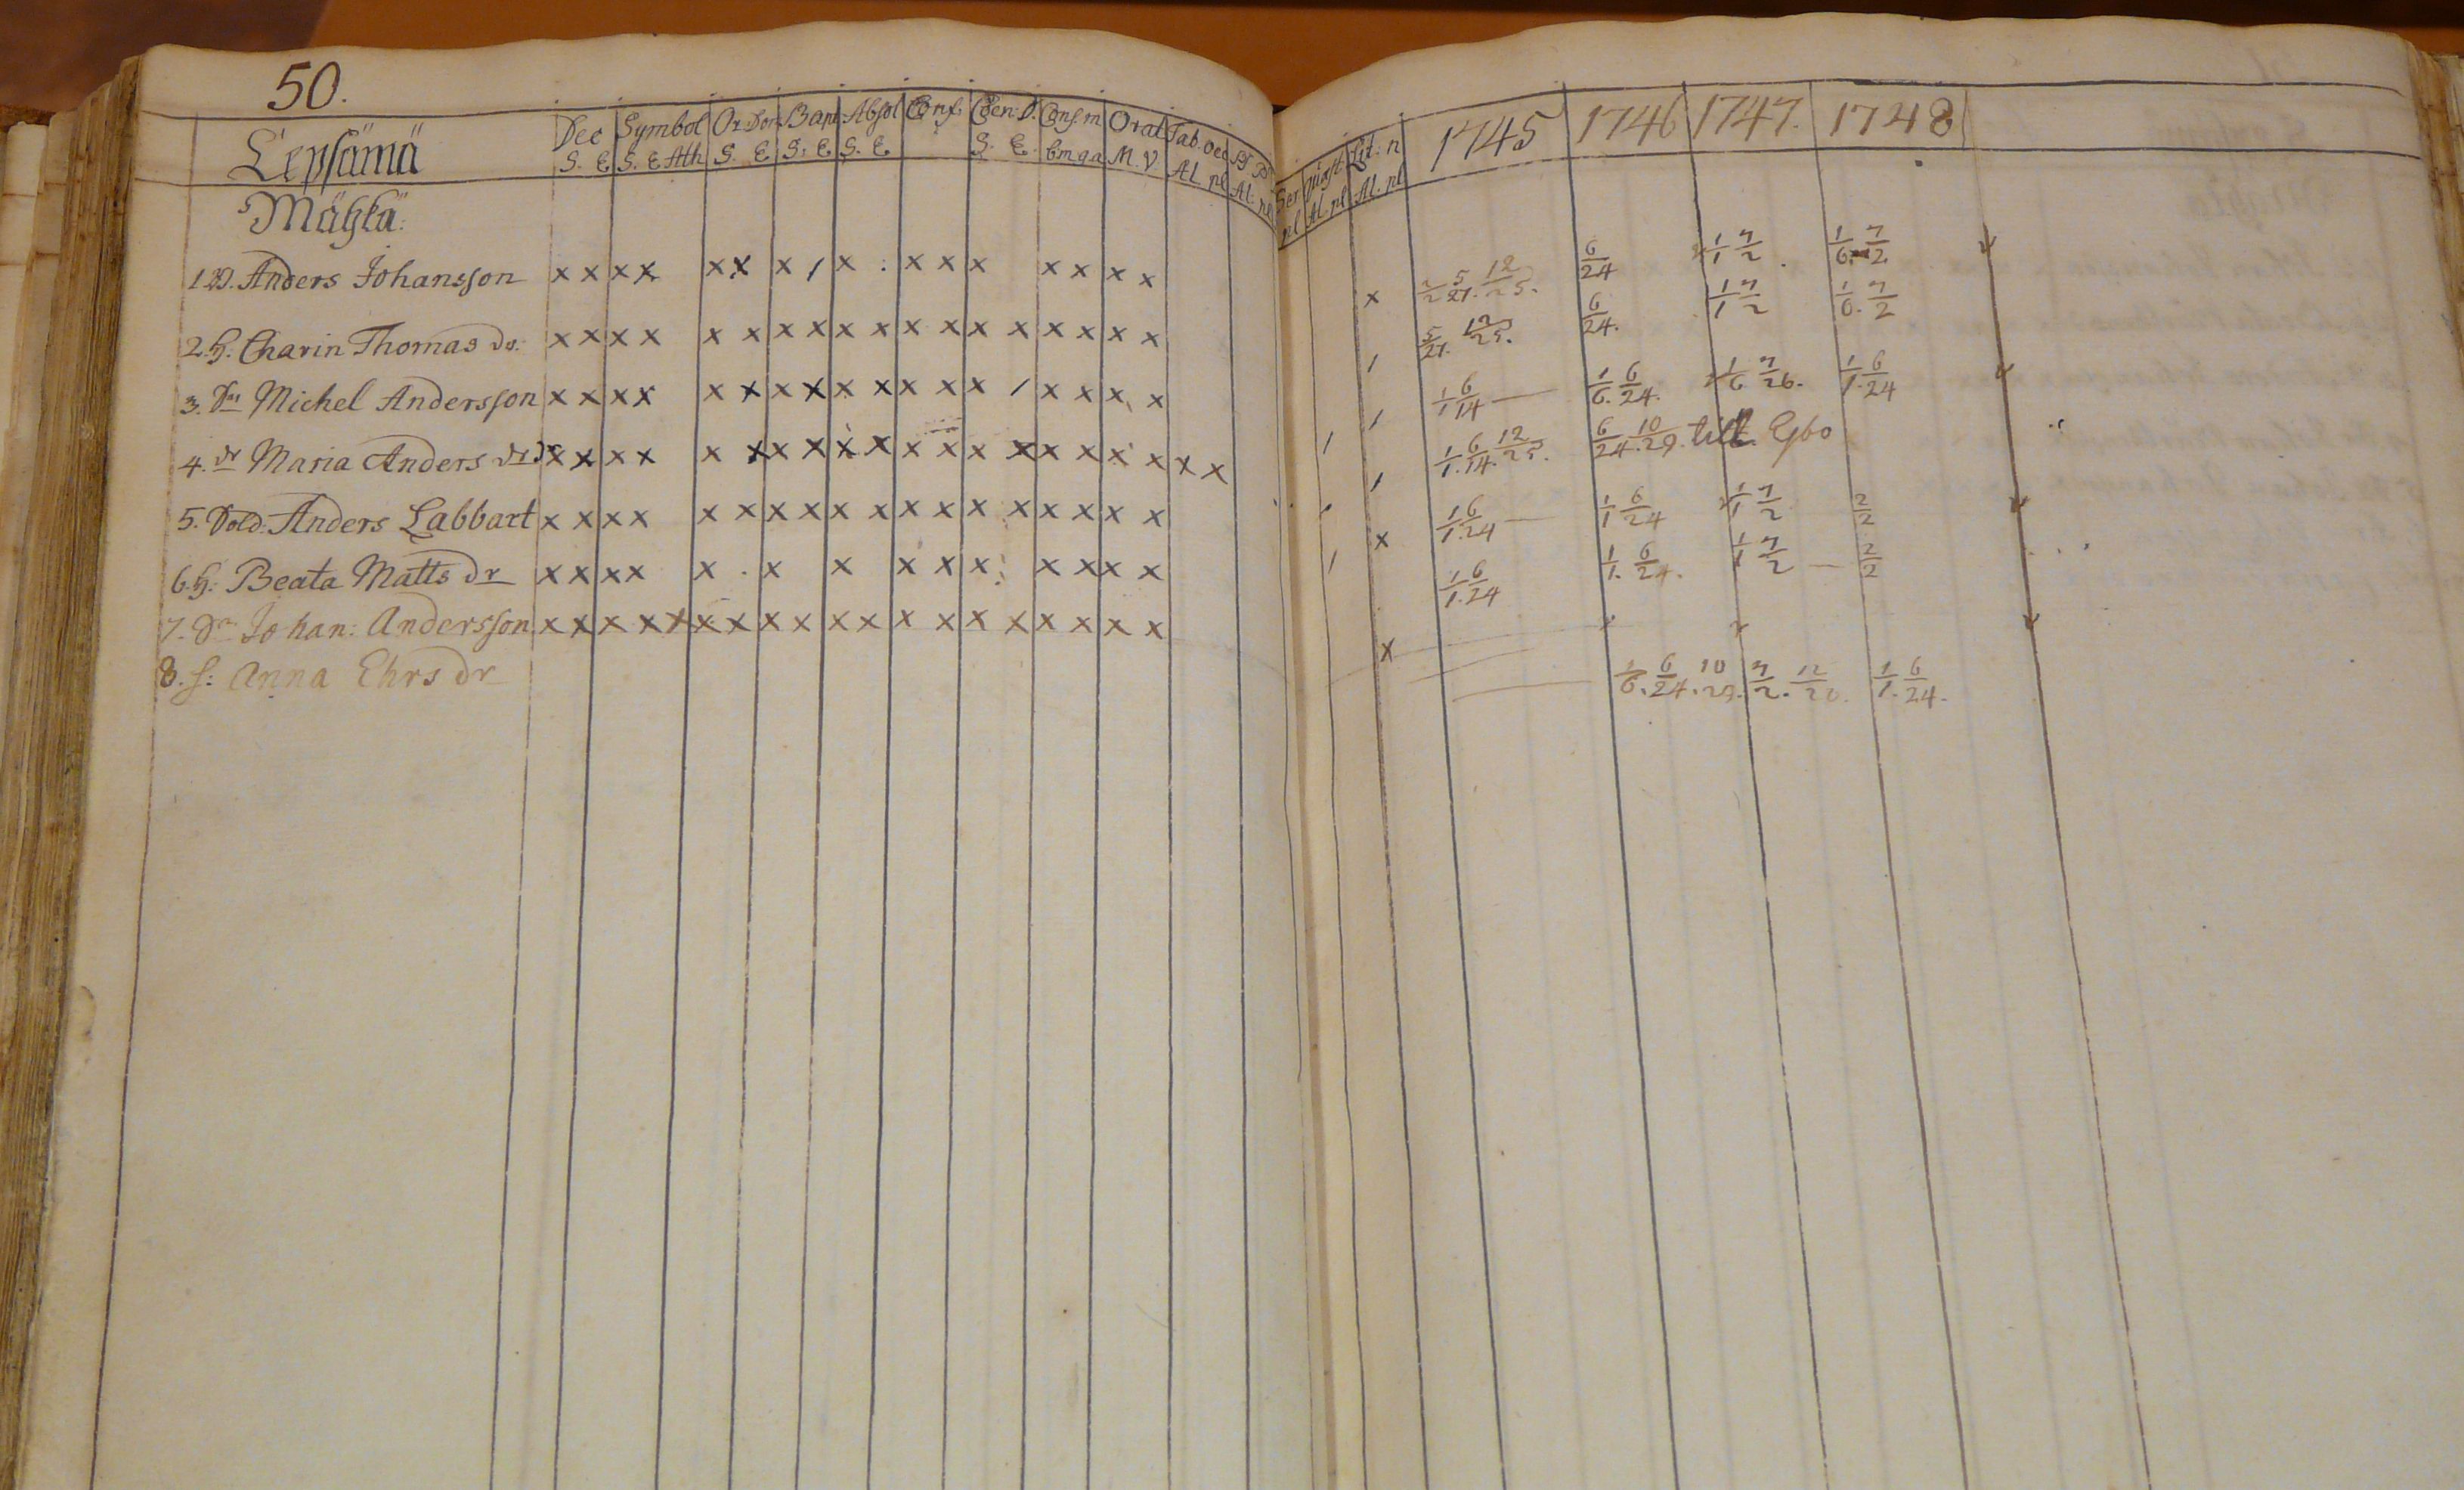 50.
Lepsämä
Dec Symbol Or. Dom Bapt Absol Conf: Coen: D. Cons m Orat Tab. oec Ps P
S. E S. E Ath S. E S. E S. E S. E. bmga M. V Al. pl Al. pl
Ser Quæst. Lit: n 1745 1746 1747. 1748
pl Al. pl Al. pl
Mähkä.
1. Anders Johansson x x x x x x x / x : x x x x x x x x 5/21. 12/25. 6/24 1/1 7/2. 1/6. 7/2
2. h: Charin Thomas dr: x x x x x x x x x x x x x x x x x x / 5/21. 12/25. 6/24. 1/1 7/2 1/6. 7/2
3. Michel Andersson x x x x x x x x x x x x x / x x x x / 1/1 6/14 — 1/6. 6/24. 1/6 7/26. 1/1. 6/24
4. dr Maria Anders dr x x x x x x x x x x x x x x x x x x x x / / 1/1. 6/14. 12/25. 6/24. 10/29. till Esbo
5. Sold. Anders Labbart x x x x x x x x x x x x x x x x x x / x 1/1. 6/24 — 1/1 6/24 1/1 7/2 2/2
6. h: Beata Matts dr x x x x x . x x x x x x x x x / 1/1. 6/24 1/1. 6/24. 1/1 7/2 — 2/2
7. Johan: Andersson x x x x x x x x x x x x x x x x x x x x
8. Anna Ehrs dr 1/6. 6/24. 10/29. 7/2. 12/26. 1/1. 6/24.